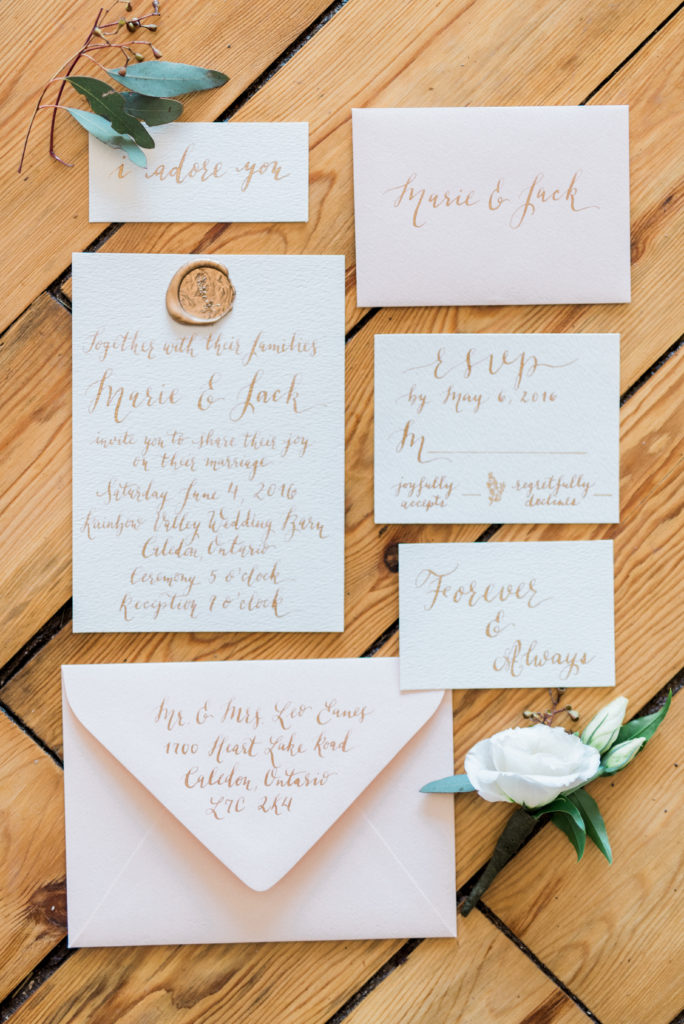 i adore you
Marie & Jack
Together with their families
Marie & Jack
invite you to share their joy
on their marriage
Saturday June 4, 2016
Rainbow Valley Wedding Barn
Caledon, Ontario
Ceremony 5 o'clock
Reception 7 o'clock
RSVP
by May 6, 2016
M
joyfully accepts
regretfully declines
Forever
&
Always
Mr. & Mrs. Leo Eanes
1200 Heart Lake Road
Caledon, Ontario
L7C 2K4